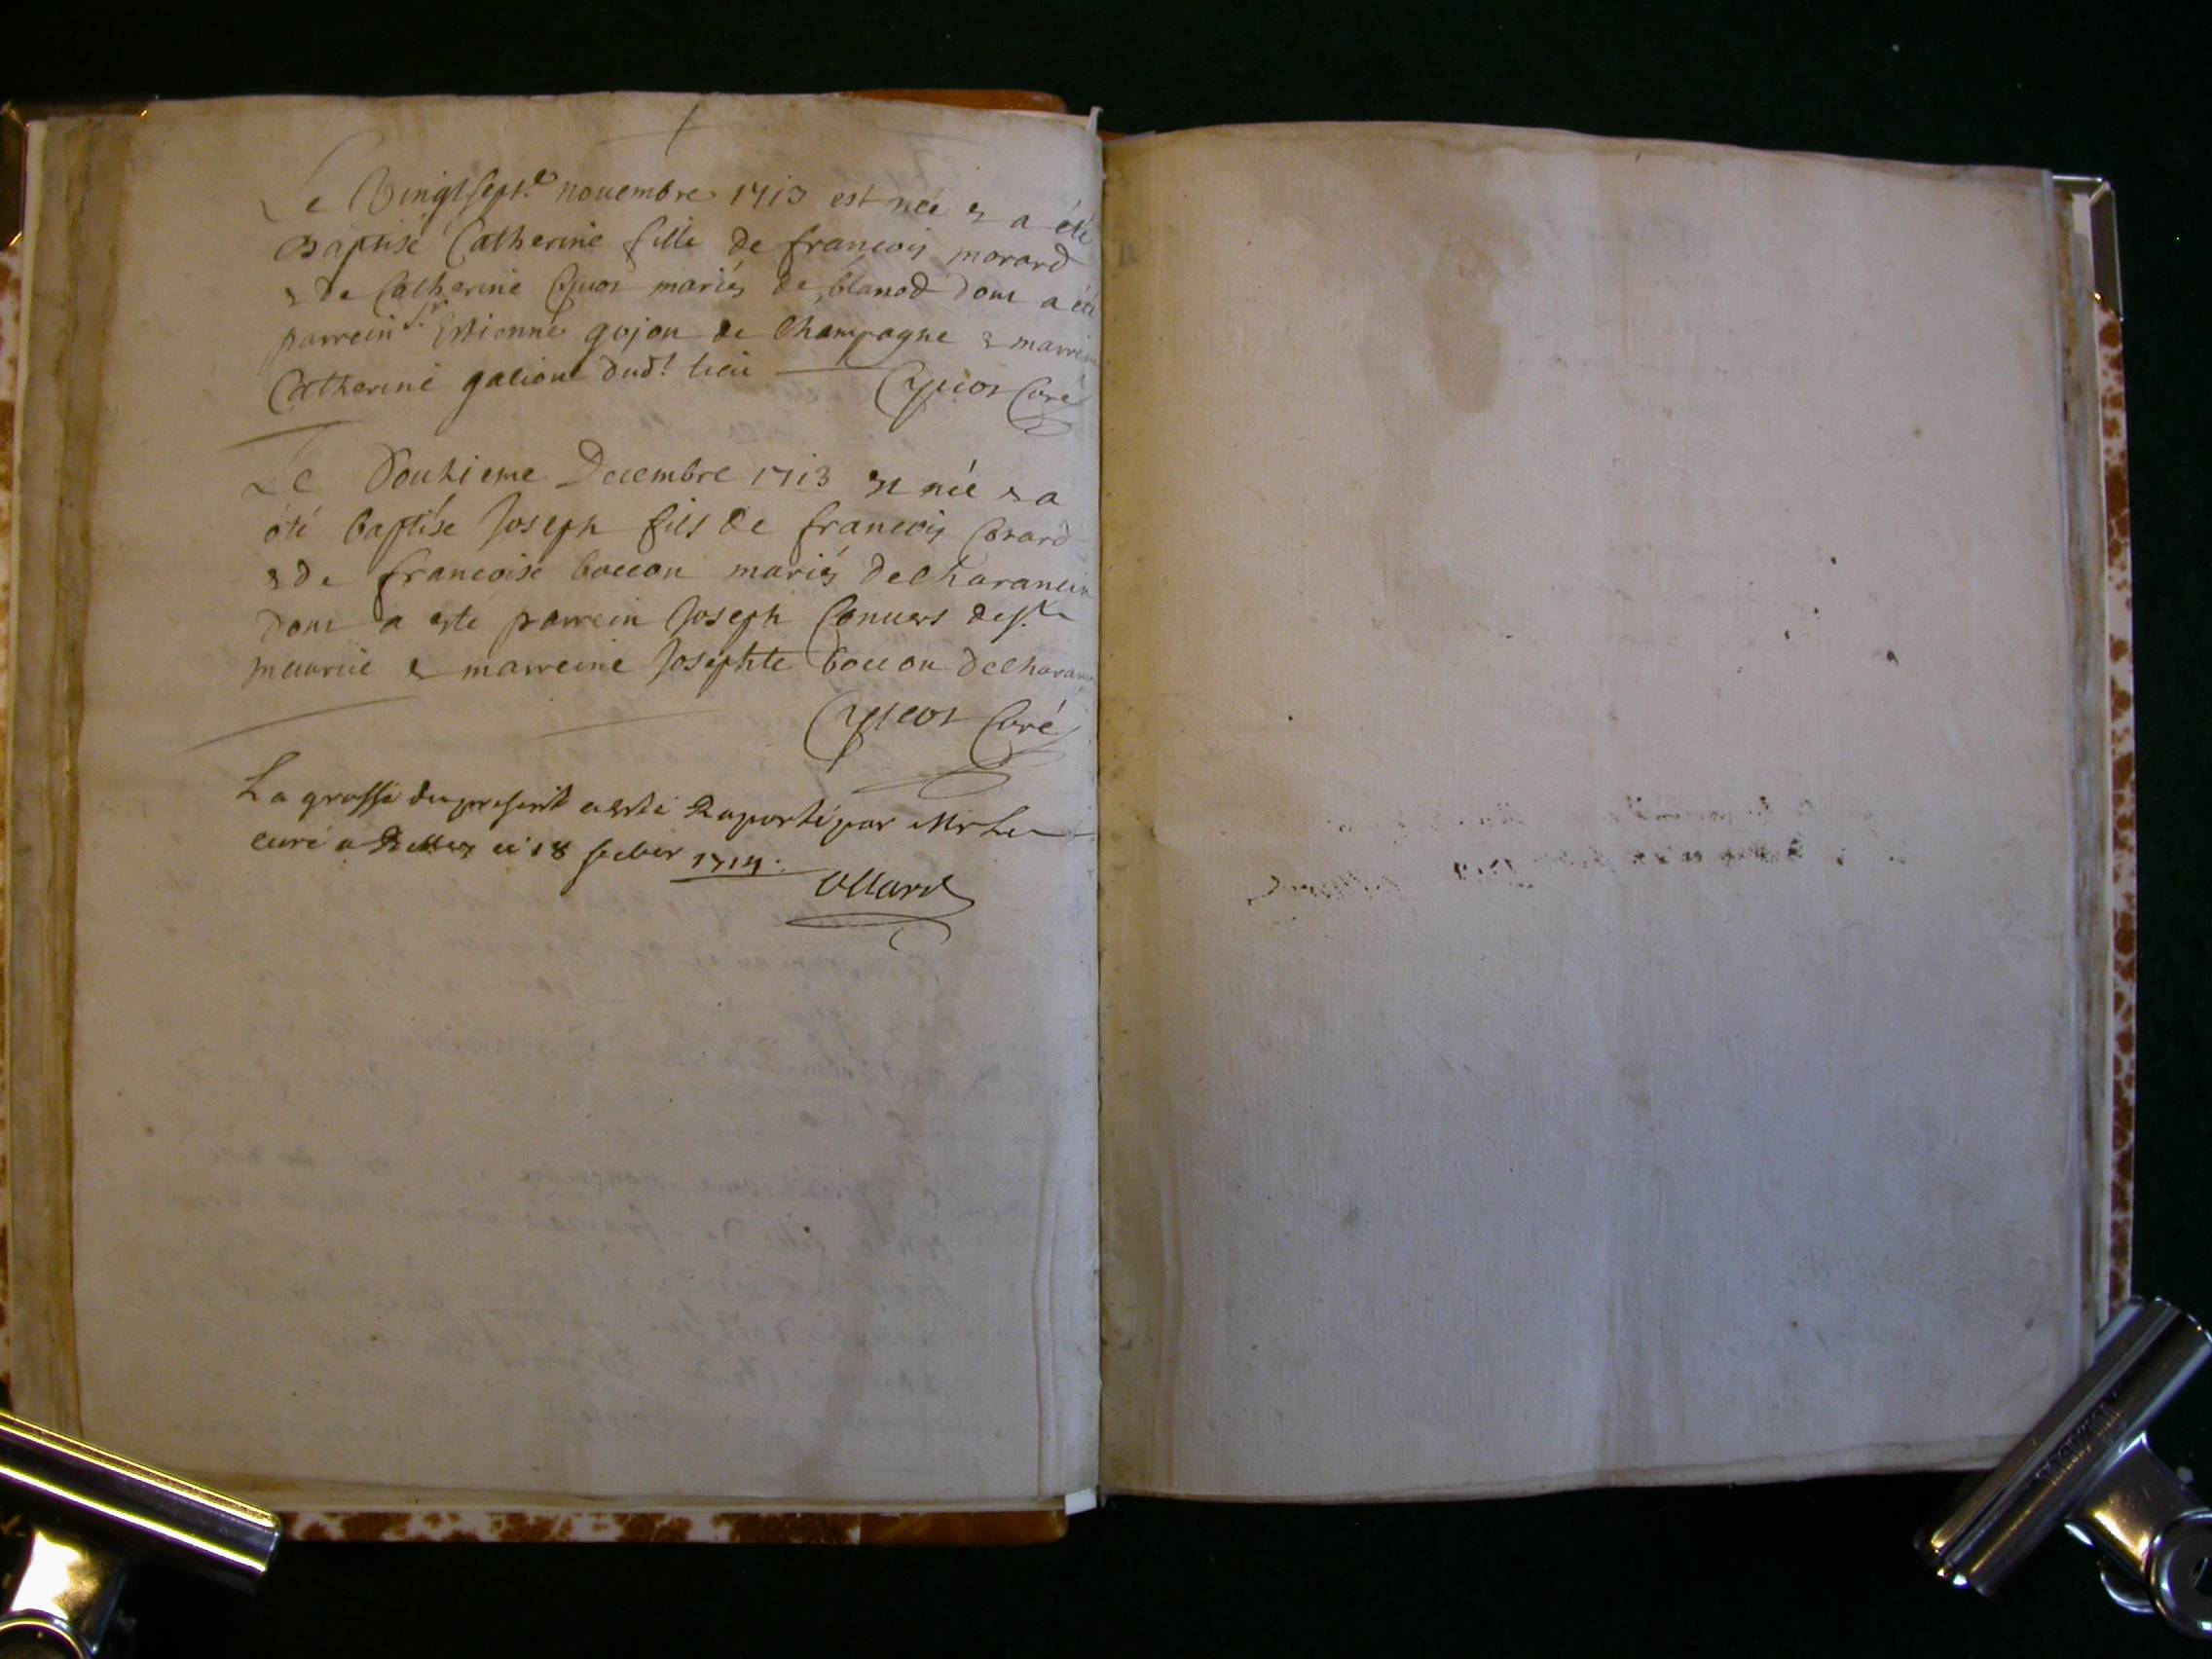 Le Vingtsept.e novembre 1713 est née & a été
Baptisé Catherine fille de francois morard
& de Catherine mariés de blanod dont a été
parrein S.r Estienne gojon de Champagne & marreine
Catherine galion dud.t lieu Curé
Le Douzieme Decembre 1713 est née & a
été baptise Joseph fils de francois
& de francoise boccon mariés de Charancin
dont a esté parrein Joseph Convers de
maurice & marreine Josephte boccon de Charancin
Curé
La grosse du present a esté Raporté par Mr Le
curé a Belley ce 18 1714.